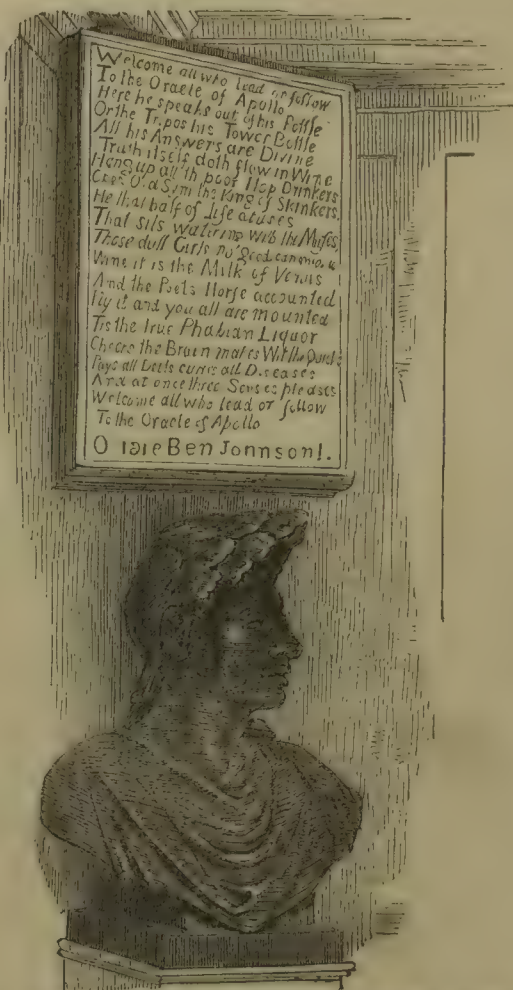 Welcome all who lead or follow
To the Oracle of Apollo
Here he speaks out of his Pottle
Or the Tripos his Tower Bottle
All his Answers are Divine
Truth itself doth flow in Wine
Hang up all th poor Hop Drinkers
Cries Old Sim the King of Skinkers.
He that half of Life abuses
That sits watering with the Muses
Those dull Girls no good can
Wine it is the Milk of Venus
And the Poets Horse accounted
Ply it and you all are mounted
Tis the true Phabian Liquor
Cheers the Brain makes Wit the
Pays all Debts cures all Diseases
And at once three Senses pleases
Welcome all who lead or follow
To the Oracle of Apollo
O rare Ben Jonnson!.